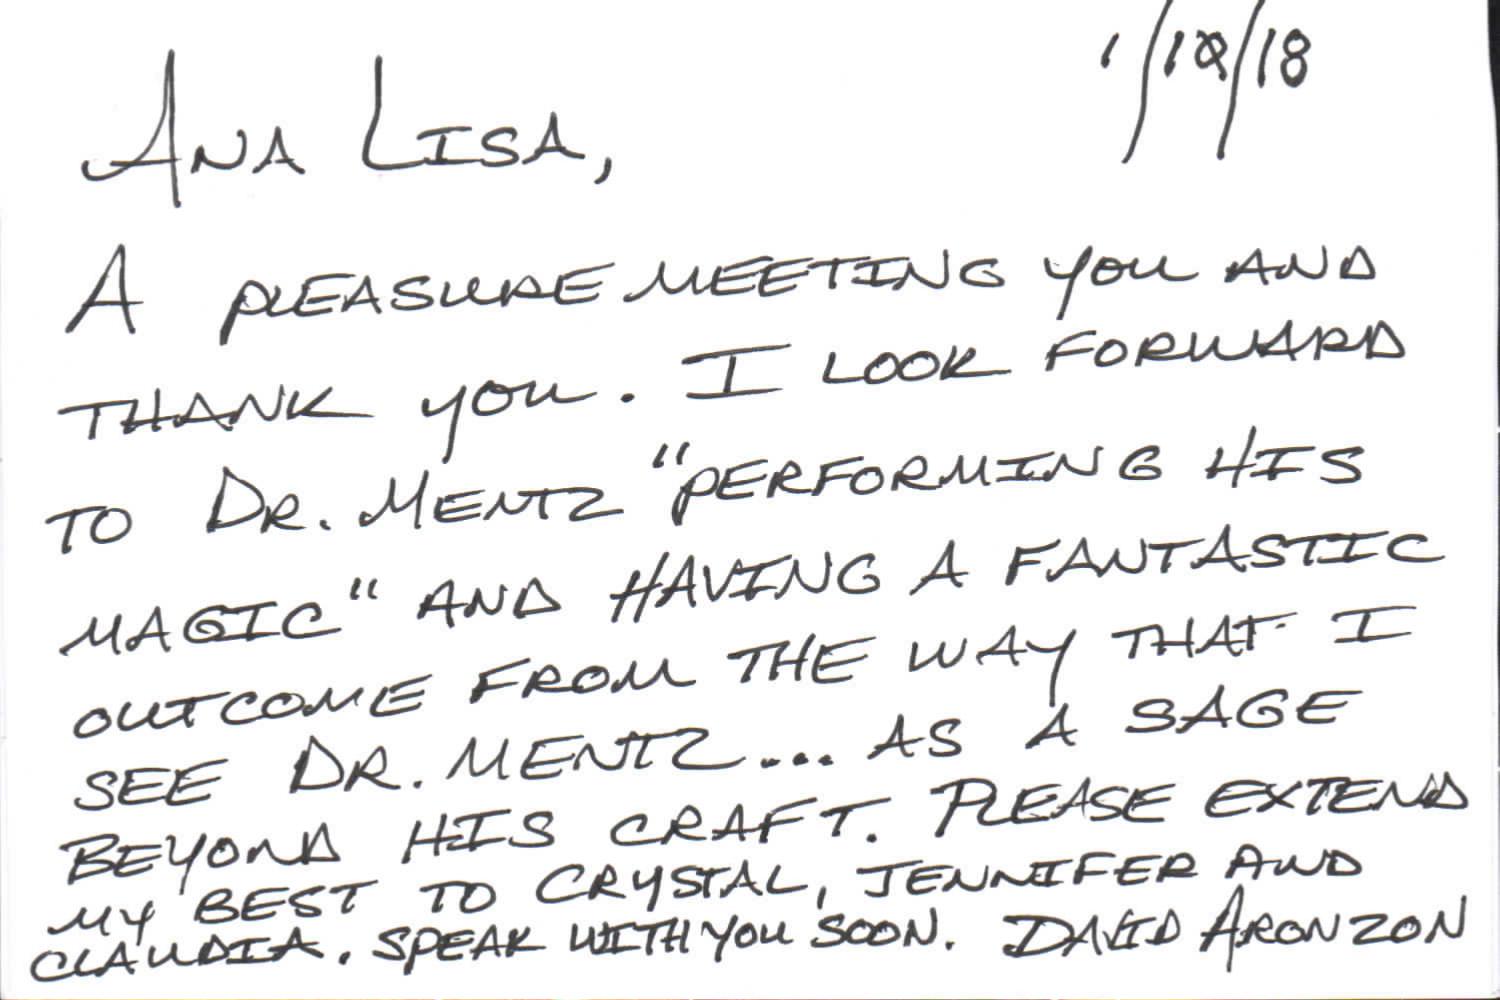 1/10/18
ANA LISA,
A PLEASURE MEETING YOU AND
THANK YOU. I LOOK FORWARD
TO DR. MENTZ "PERFORMING HIS
MAGIC" AND HAVING A FANTASTIC
OUTCOME FROM THE WAY THAT I
SEE DR. MENTZ... AS A SAGE
BEYOND HIS CRAFT. PLEASE EXTEND
MY BEST TO CRYSTAL, JENNIFER AND
CLAUDIA. SPEAK WITH YOU SOON. DAVID ARONZON